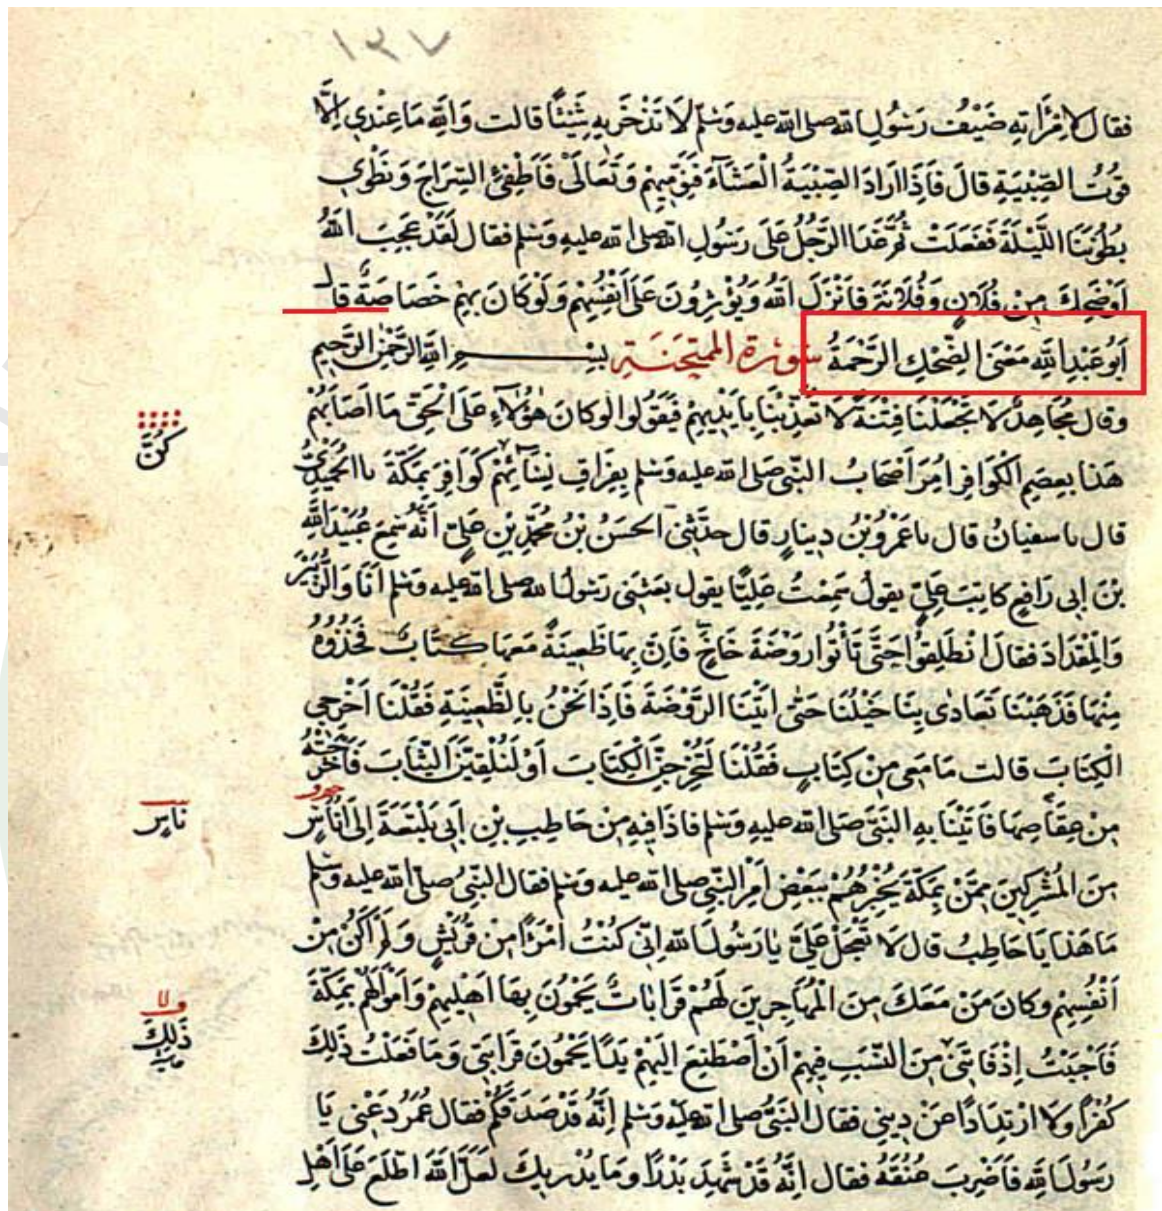 ١٢٧
فقال لِامْرَأَتِهِ ضَيْفُ رَسُولِ الله صلى الله عليه وَسَلم لَا تَدَّخِرِيهِ شَيْئًا قالت وَاللهِ مَا عِنْدِي إِلَّا
قُوتُ الصِّبْيَةِ قالَ فَاِذَا اَرَادَ الصِّبْيَةُ الْعَشَآءَ فَنَوِّمِيهِمْ وَتَعَالَيْ فَاَطْفِئِي السِّرَاجَ وَنَطْوِي
بُطُونَنَا اللَّيْلَةَ فَفَعَلَتْ ثُمَّ غَدَا الرَّجُلُ عَلَى رَسُولِ الله صلى الله عليهِ وَسَلم فقال لَقَدْ عَجِبَ اللهُ
اَوْ ضَحِكَ مِنْ فُلَانٍ وَفُلَانَةَ فَاَنْزَلَ اللهُ وَيُؤْثِرُونَ عَلَى اَنْفُسِهِمْ وَلَوْ كَانَ بِهِمْ خَصَاصَةٌ قال
اَبُو عَبْدِ اللهِ مَعْنَى الضِّحْكِ الرَّحْمَةُ سُورَةُ الممتَحِنَةِ بِسْمِ اللهِ الرَّحْمٰنِ الرَّحِيمِ
وقال مُجَاهِدٌ لَا تَجْعَلْنَا فِتْنَةً لَا تُعَذِّبْنَا بِاَيْدِيهِمْ فَيَقُولُوا لَوْ كَانَ هٰؤُلَاءِ عَلَى الْحَقِّ مَا اَصَابَهُمْ
كُنَّ
هَذَا بِعِصَمِ الْكَوَافِرِ اُمِرَ اَصْحَابُ النَّبِيِّ صَلى الله عليه وَسَلم بِفِرَاقِ نِسَآئِهِمْ كَوَافِرَ بِمَكَّةَ نا الْحُمَيْدِيُّ
قال نا سفيانُ قال نا عَمْرُو بْنُ دِينَارٍ قال حدَّثَنِي الحسَنُ بْنُ مُحَمَّدِ بْنِ عَلِيٍّ اَنَّهُ سَمِعَ عُبَيْدَ اللهِ
بْنَ اَبِي رَافِعٍ كَاتِبَ عَلِيٍّ يقولُ سَمِعْتُ عَلِيًّا يقول بعَثَنِي رَسُولُ الله صلى الله عليه وَسلم اَنَا وَالزُّبَيْرَ
وَالْمِقْدَادَ فقال انْطَلِقُوا حَتَّى تَأْتُوا رَوْضَةَ خَاخٍ فَاِنَّ بِهَا ظَعِينَةً مَعَهَا كِتَابٌ فَخُذُوهُ
مِنْهَا فَذَهَبْنَا تَعَادَى بِنَا خَيْلُنَا حَتَّى اَتَيْنَا الرَّوْضَةَ فَاِذَا نَحْنُ بِالظَّعِينَةِ فَقُلْنَا اَخْرِجِي
الْكِتَابَ قالت مَا مَعِي مِنْ كِتَابٍ فَقُلْنَا لَتُخْرِجِنَّ الْكِتَابَ اَوْ لَنُلْقِيَنَّ الثِّيَابَ فَاَخْرَجَتْهُ
مِنْ عِقَاصِهَا فَاَتَيْنَا بِهِ النَّبِيَّ صَلى الله عليهِ وَسلم فَاذَا فِيهِ مِنْ حَاطِبِ بْنِ اَبِي بَلْتَعَةَ اِلَى اُنَاسٍ
نَاسٍ
مِنَ الْمُشْرِكِينَ مِمَّنْ بِمَكَّةَ يُخْبِرُهُمْ بِبَعْضِ اَمْرِ النَّبِيِّ صلى الله عليه وَسلم فقال النَّبِيُّ صلى الله عليه وَسَلم
مَا هَذَا يَا حَاطِبُ قال لَا تَعْجَلْ عَلَيَّ يَا رَسُولَ اللهِ اِنِّي كُنْتُ امْرَأً مِنْ قُرَيْشٍ وَلَمْ اَكُنْ مِنْ
اَنْفُسِهِمْ وكَانَ مَنْ مَعَكَ مِنَ الْمُهَاجِرِينَ لَهُمْ قَرَابَاتٌ يَحْمُونَ بِهَا اَهْلِيهِمْ وَاَمْوَالَهُمْ بِمَكَّةَ
ولا
ذَلِكَ
فَاَحْبَبْتُ اِذْ فَاتَنِي مِنَ النَّسَبِ فِيهِمْ اَنْ اَصْطَنِعَ اِلَيْهِمْ يَدًا يَحْمُونَ قَرَابَتِي وَمَا فَعَلْتُ ذَلِكَ
كُفْرًا وَلَا ارْتِدَادًا عَنْ دِينِي فقال النَّبِيُّ صلى الله عليه وَسلم اِنَّهُ قَدْ صَدَقَكُمْ فقال عُمَرُ دَعْنِي يَا
رَسُولَ اللهِ فَاَضْرِبَ عُنُقَهُ فقال اِنَّهُ قَدْ شَهِدَ بَدْرًا وَمَا يُدْرِيكَ لَعَلَّ اللهَ اطَّلَعَ عَلَى اَهْلِ